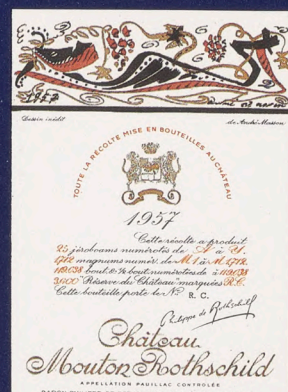 1957
Dessin inédit
de André Masson
TOUTE LA RÉCOLTE MISE EN BOUTEILLES AU CHÂTEAU
1957
Cette récolte a produit
25 jéroboams numérotés de
1712 magnums numér. de M.1 à M.1712
3.000 Réserve du Château marquées R.C.
Cette bouteille porte le Nº R. C.
Philippe de Rothschild
Château
Mouton Rothschild
APPELLATION PAUILLAC CONTROLÉE